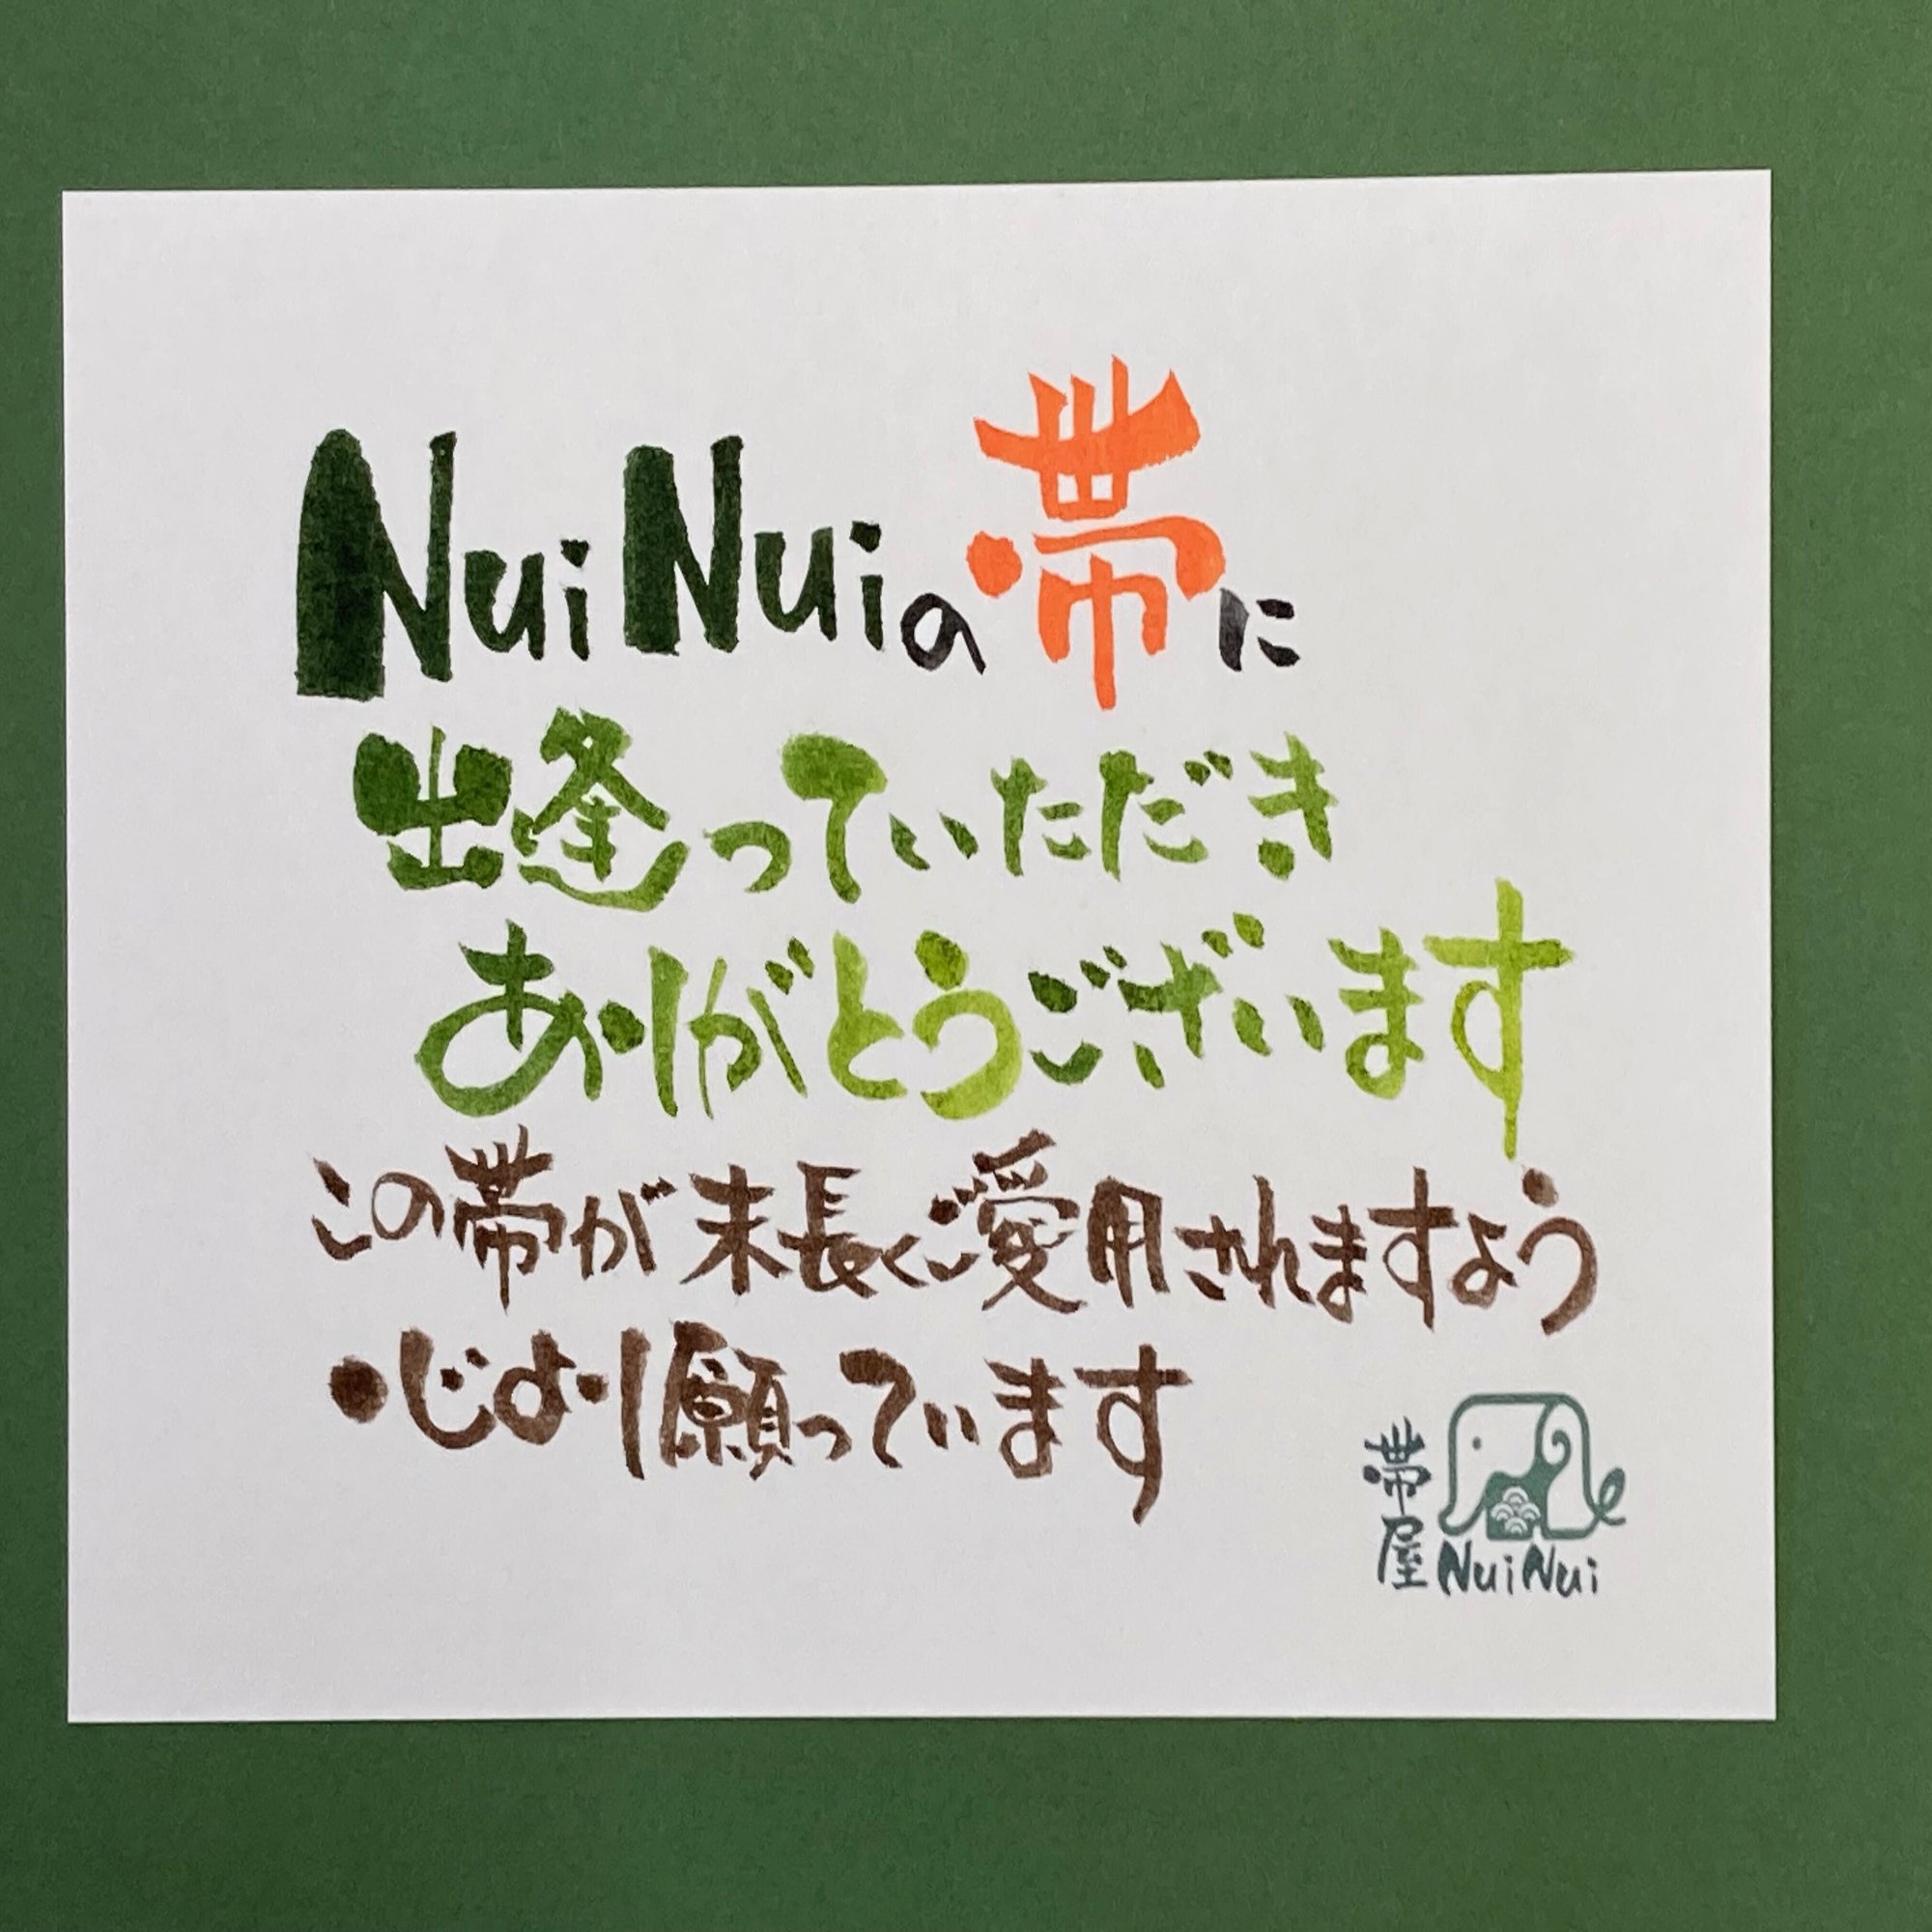 NuiNuiの帯に
出逢っていただき
ありがとうございます
この帯が末長くご愛用されますよう
心より願っています
帯屋
NuiNui